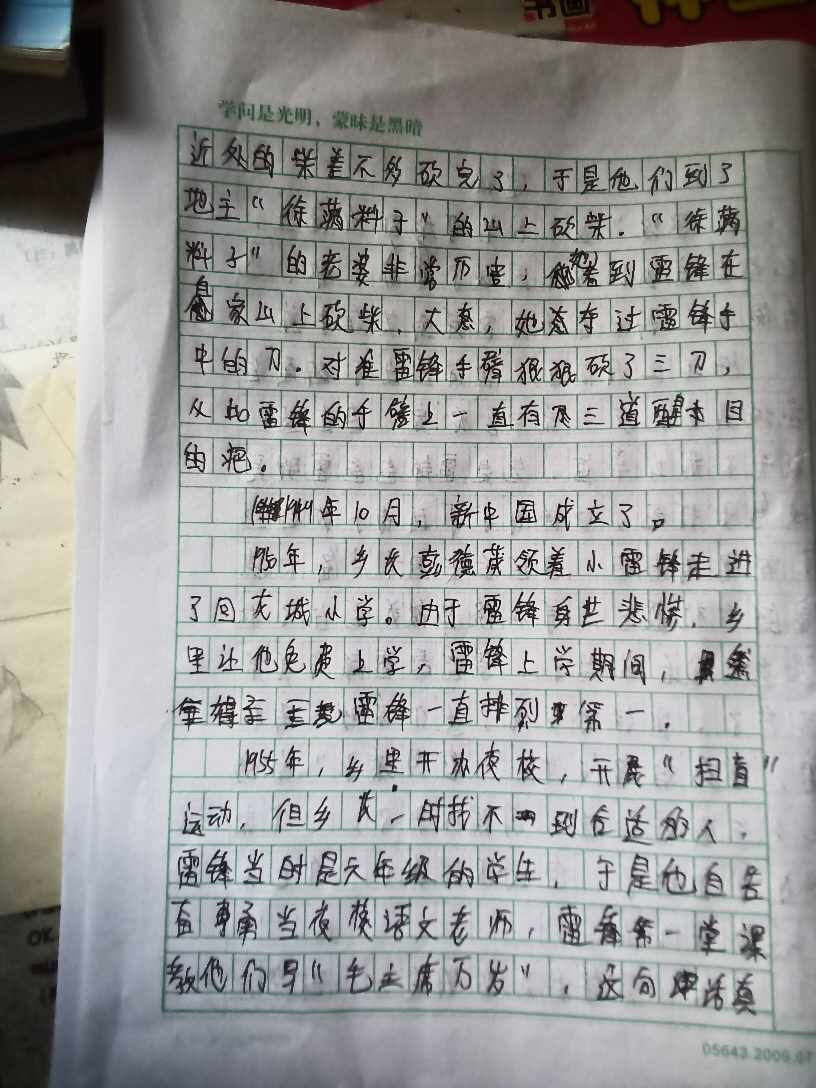 书画
学问是光明，蒙昧是黑暗
近处的柴差不多砍完了，于是他们到了
地主"徐满料子"的山上砍柴．"徐满
料子"的老婆非常历害，她看到雷锋在
自家山上砍柴．大怒，她夺过雷锋手
中的刀．对准雷锋手臂狠狠砍了三刀，
从此雷锋的手臂上一直有三道醒目
的疤．
年10月，新中国成立了。
1950年，乡长彭德茂领着小雷锋走进
了回龙城小学。由于雷锋身世悲惨．乡
里让他免费上学，雷锋上学期间，
雷锋一直排列第一．
1955年，乡里开办夜校，开展"扫盲"
运动．但乡长一时找不到合适的人．
雷锋当时是六年级的学生．于是他自告
奋勇当夜校语文老师，雷锋第一堂课
教他们写"毛主席万岁"．这句话真
05643.2009.07
OK